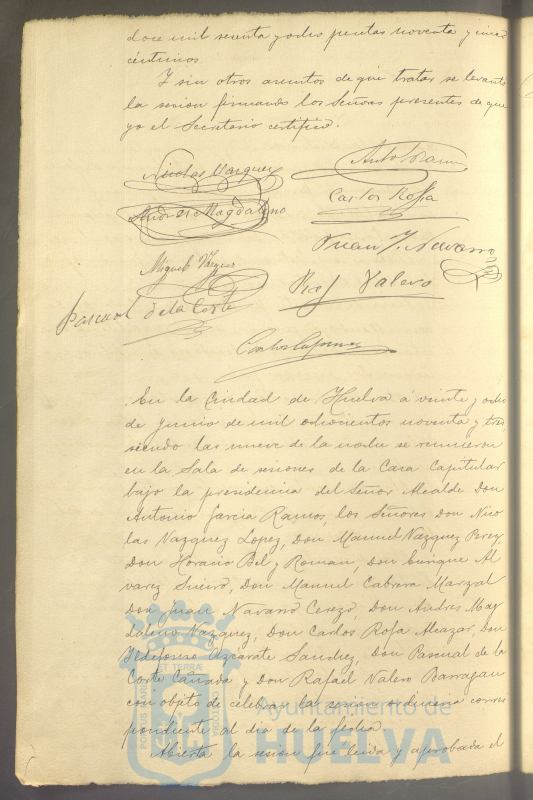 doce mil sesenta y ocho pesetas noventa y cinco
céntimos
Y sin otros asuntos de que tratar se levantó
la sesion firmando los Señores presentes de que
yo el Secretario certifico.
Nicolas Vazquez
Carlos Rofa
Magdaleno
Juan J. Navarro
Miguel Vazquez
Raf Valero
Pascual de la Corte
En la Ciudad de Huelva á veinte y ocho
de Junio de mil ochocientos noventa y tres
siendo las nueve de la noche se reunieron
en la Sala de sesiones de la Casa Capitular
bajo la presidencia del Señor Alcalde Don
Antonio Garcia Ramos, los Señores Don Nico
las Vazquez Lopez, Don Manuel Vazquez Perez,
Don Horacio Bel y Roman, Don Enrique Al
varez Sueiro, Don Manuel Cabrera Marzal
Don Juan Navarro Cerezo, Don Andres Mag
daleno Vazquez, Don Carlos Rofa Alcazar, Don
Ildefonso Azcarate Sanchez, Don Pascual de la
Corte Cañada y Don Rafael Valero Barragan
con objeto de celebrar la sesion ordinaria corres
pondiente al dia de la fecha.
Abierta la sesion fue leida y aprobada el
PORTUS MARIS ET TERRÆ CUSTODIA
Ayuntamiento de
HUELVA